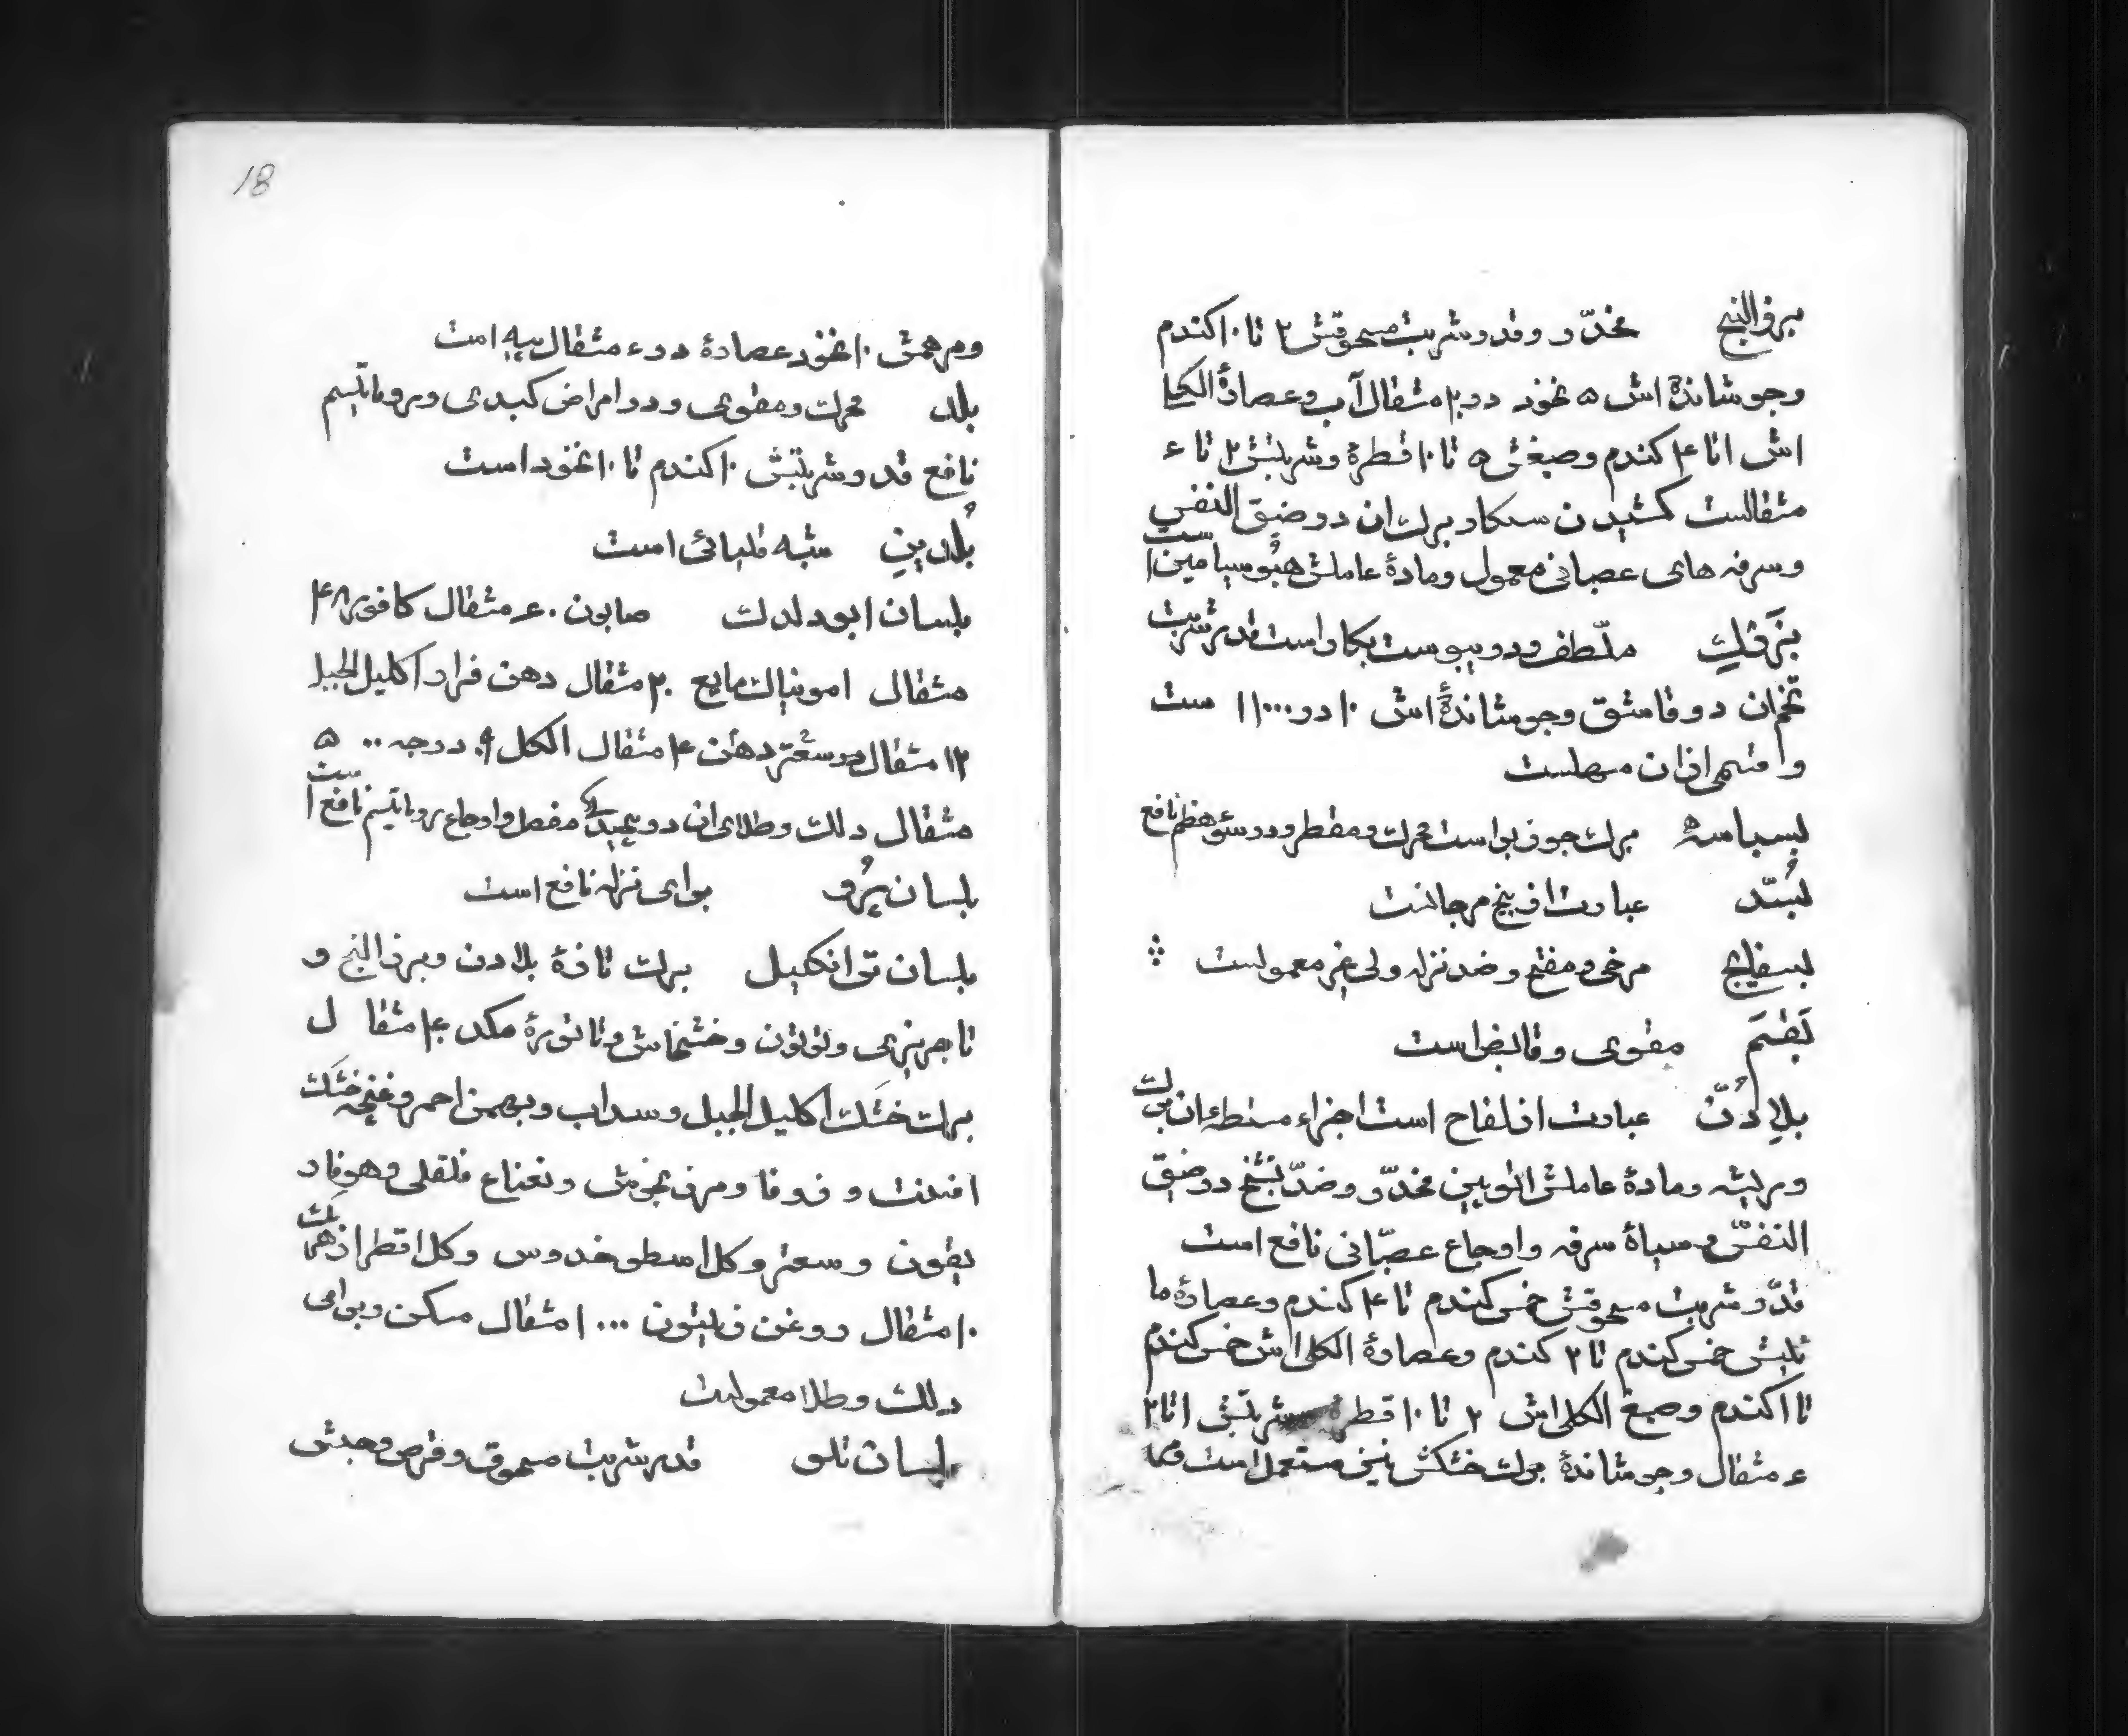 برز البنج مخدّر و قدر شربت مسحوقش ۲ تا ۱۰ کندم
وجوشاندهٔ اش ۵ نخود در ۲۰ مثقال آب وعصارهٔ الکلی
اش ۱ تا ۴ کندم وصبغش ۵ تا ۱۰ قطرهٔ وشربتش ۲ تا ۴
مثقالست کشیدن سیکار برک ان در ضیق النفس
وسرفه های عصبانی معمول ومادهٔ عاملش هیوسیامین است
بزرقَطِ ملطّف ودر یبوست بکار است قدر شربت
تخم ان دو قاشق وجوشاندهٔ اش ۱۰ در ۱۰۰۰ ست
و قسمی از ان مسهلست
بسباسه برک جوز بوا است محرک ومقطر ودر سوء هضم نافع
بُسّد عبارت از بیخ مرجانست
بسفایج مرخی ومفتح وضد نزله ولی غیر معمولست
بَقَّم مقوی وقابض است
بلادُنّ عبارت از لفاح است اجزاء مستعمله ان برک
وریشه ومادهٔ عاملش اتروپین مخدّر وضدّ تشنج در ضیق
النفس وسیاه سرفه واوجاع عصبّانی نافع است
قدر شربت مسحوقش خمس کندم تا ۴ کندم وعصارهٔ ما
ئیش خمس کندم تا ۲ کندم وعصارهٔ الکلی اش خمس کندم
تا ۱ کندم وصبغ الکلی اش ۲ تا ۱۰ قطره شربتش ۱ تا ۲
۴ مثقال وجوشاندهٔ برک خشکش نیز مستعمل است
18
ومرهمش ۱۰ نخود عصارهٔ در ۴ مثقال پیه است
بلد محرک ومقوی ودر امراض کبدی وروماتیسم
نافع قدر شربتش ۱۰ کندم تا ۱۰ نخود است
بُلدینِ شبه قلیائی است
بلسان ابودلدک صابون ۴۰ مثقال کافور ۴۸
مثقال امونیاک مایع ۲۰ مثقال دهن فرار اکلیل الجبل
۱۲ مثقال دهن ۴ مثقال الکل ۹۰ درجه ۵۰۰
مثقال دلک وطلای ان در مفصل واوجاع روماتیسم نافع است
بلسان پُرو برای نزله نافع است
بلسان تی انکیل برک تازهٔ بلادن وبرز البنج و
تاجریزی وتوتون وخشخاش وتاتورهٔ هر کدام ۴۰ مثقال
برک خشک اکلیل الجبل وسداب وبهمن احمر وغنچه خشک
افسنت و زوفا ومرزنجوش ونعناع فلفلی وهوفار
یقون وسعتر وکل اسطوخدوس وکل اقطی از هر یک
۱۰ مثقال روغن زیتون ۱۰۰۰ مثقال مسکن وبرای
دلک وطلا معمولست
بلسان تلو قدر شربت مسحوق وقرص وحبش